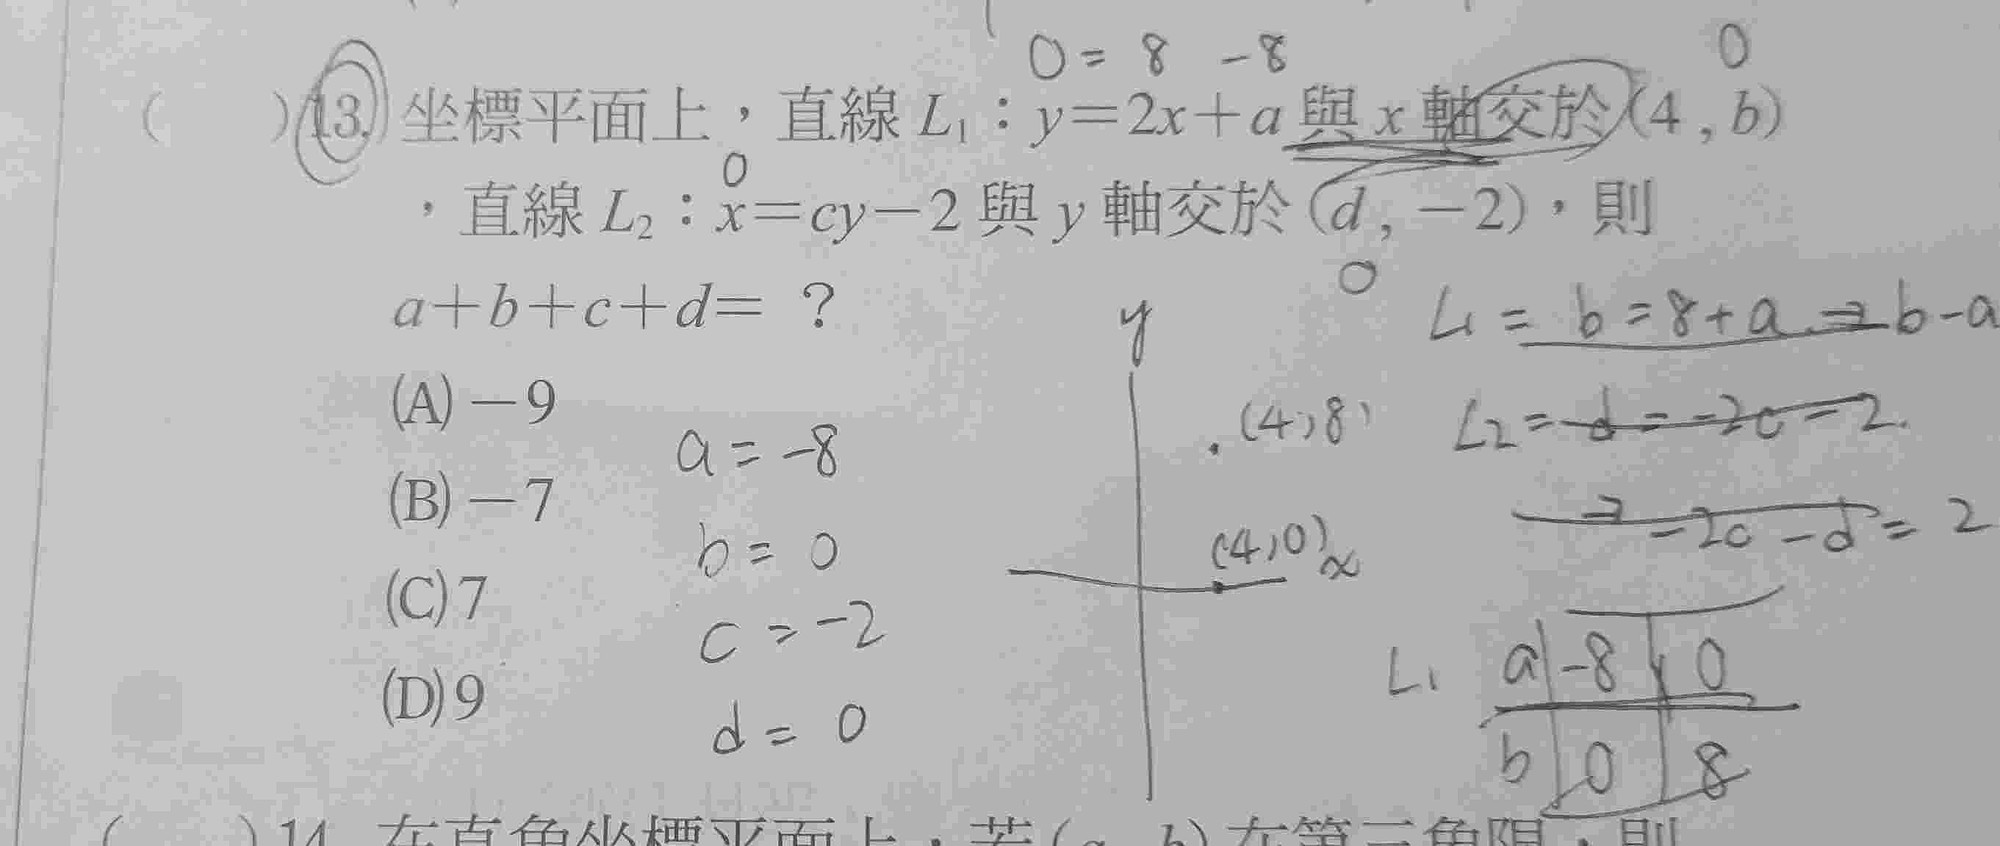 0 = 8 -8
0
( )13. 坐標平面上，直線 L₁：y=2x+a 與 x 軸交於(4 , b)
0
，直線 L₂：x=cy-2 與 y 軸交於(d , -2)，則
0
a+b+c+d= ？
y
L₁ = b = 8+a ⇒ b-a
(A) -9
(4,8)
L₂ = d = -2c - 2.
a = -8
(B) -7
⇒ -2c -d = 2
b = 0
(4,0) x
(C) 7
c = -2
L₁ a -8 0
(D) 9
d = 0
b 0 8
( )14. 在直角坐標平面上，若(a , b)在第三象限，則